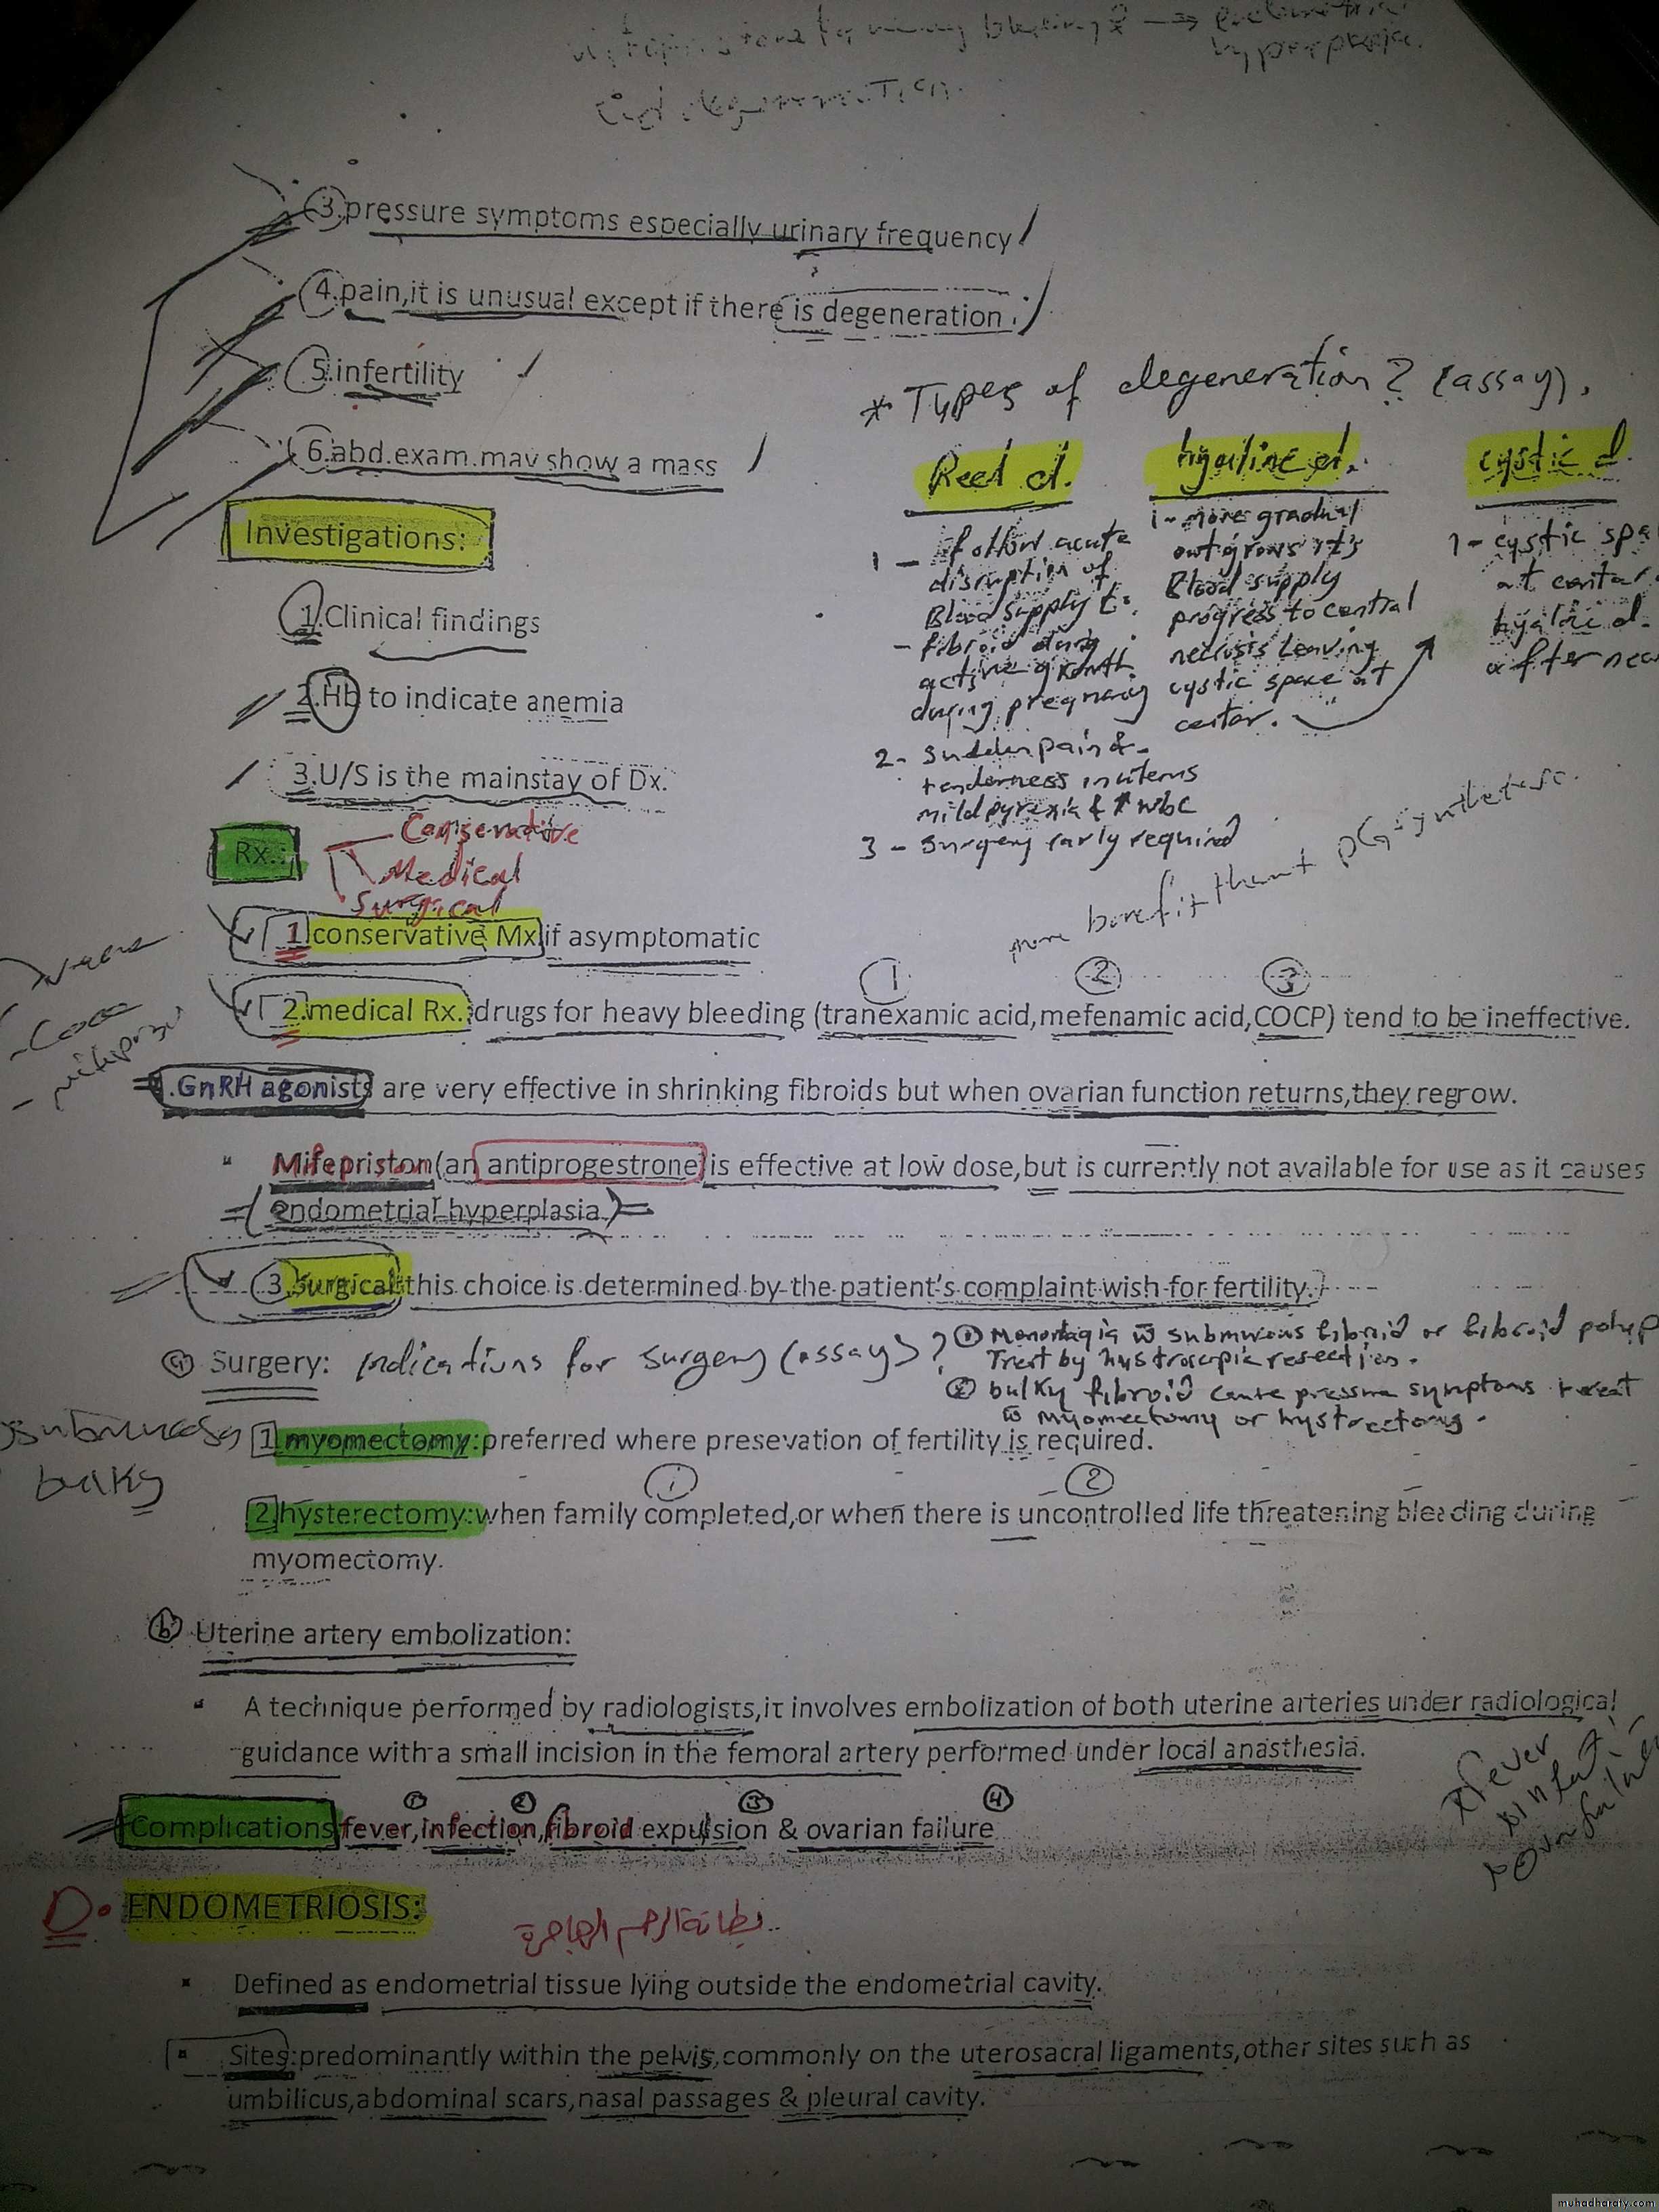 bleeding
hyperplasia.
degeneration.
3.pressure symptoms especially urinary frequency
4.pain,it is unusual except if there is degeneration.
5.infertility
* Types of degeneration? (assay).
6.abd.exam.may show a mass
Reed d.
hyaline d.
cystic d.
Investigations:
1- follow acute
disruption of
Blood supply to
- fibroid during
active growth
during pregnancy
2- sudden pain &
tenderness in uterus
mild pyrexia & ↑ wbc
3- surgery early required
1- more gradual
outgrows it's
Blood supply
progress to central
necrosis leaving
cystic space at
center.
1- cystic spa
at center
hyaline d.
after nec
1.Clinical findings
2.Hb to indicate anemia
3.U/S is the mainstay of Dx.
Rx.:
Conservative
Medical
Surgical
more benefit than PG synthetase.
1.conservative Mx if asymptomatic
① ② ③
2.medical Rx.:drugs for heavy bleeding (tranexamic acid,mefenamic acid,COCP) tend to be ineffective.
.GnRH agonists are very effective in shrinking fibroids but when ovarian function returns,they regrow.
Mifepriston(an antiprogestrone)is effective at low dose,but is currently not available for use as it causes
endometrial hyperplasia.
3.Surgical:this choice is determined by the patient's complaint wish for fertility.
ⓐ Surgery: indications for surgery (assay)?
① Menorrhagia w̄ submucous fibroid or fibroid polyp
Treat by hystroscopic resection.
② bulky fibroid cause pressure symptoms treat
w̄ myomectomy or hystrectomy.
submucosa
bulky
1.myomectomy:preferred where presevation of fertility is required.
① ②
2.hysterectomy:when family completed,or when there is uncontrolled life threatening bleeding during
myomectomy.
ⓑ Uterine artery embolization:
A technique performed by radiologists,it involves embolization of both uterine arteries under radiological
guidance with a small incision in the femoral artery performed under local anasthesia.
① ② ③ ④
Complications:fever,infection,fibroid expulsion & ovarian failure
fever
D. ENDOMETRIOSIS:
بطانة الرحم الهاجرة
Defined as endometrial tissue lying outside the endometrial cavity.
Sites:predominantly within the pelvis,commonly on the uterosacral ligaments,other sites such as
umbilicus,abdominal scars,nasal passages & pleural cavity.
muhadharaty.com